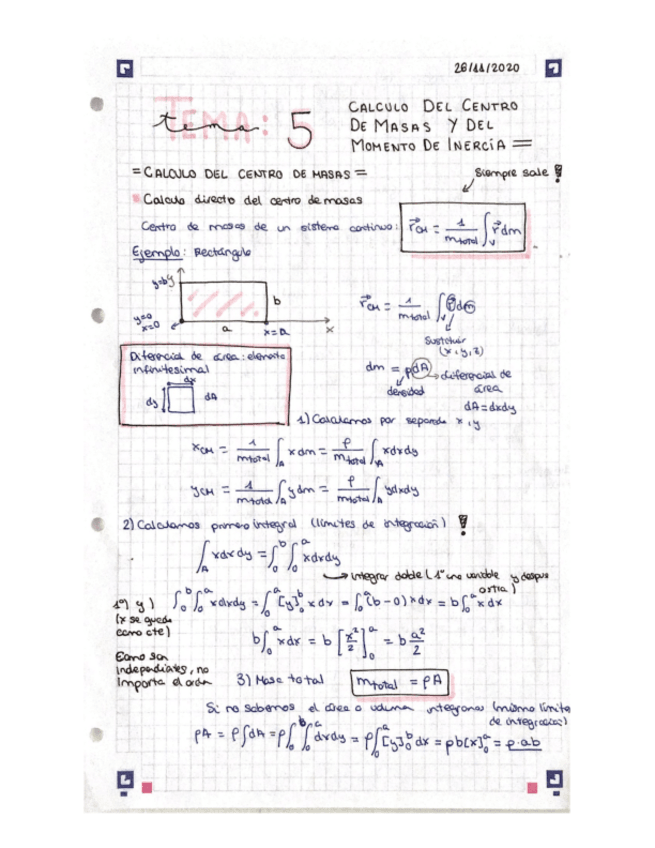 26/11/2020
TEMA: 5
tema
CALCULO DEL CENTRO
DE MASAS Y DEL
MOMENTO DE INERCIA =
= CALCULO DEL CENTRO DE MASAS =
Siempre sale !
Calculo directo del centro de masas
Centro de masas de un sistema continuo: r⃗CM = 1/mtotal ∫v r⃗ dm
Ejemplo: Rectángulo
y=b y
b
y=0
x=0
a
x=a
x
r⃗CM = 1/mtotal ∫v r⃗ dm
Sustituir
(x,y,z)
Diferencial de área: elemento
infinitesimal
dx
dy
dA
dm = ρdA → diferencial de
área
densidad
dA=dxdy
1) Calculamos por separado x,y
xCM = 1/mtotal ∫A x dm = ρ/mtotal ∫A xdxdy
yCM = 1/mtotal ∫A y dm = ρ/mtotal ∫A ydxdy
2) Calculamos primero integral (límites de integración) !
∫A xdxdy = ∫0^b ∫0^a xdxdy
→ integrar doble (1º una variable y despues
1º) y) ∫0^b ∫0^a xdxdy = ∫0^a [y]0^b x dx = ∫0^a (b-0) x dx = b ∫0^a x dx
(x se queda
como cte)
b ∫0^a xdx = b [x²/2]0^a = b a²/2
Como son
independientes, no
importa el orden
3) Masa total
mtotal = ρA
Si no sabemos el área o volumen integramos (mismo límite
de integración)
ρA = ρ∫dA = ρ ∫0^b ∫0^a dxdy = ρ ∫0^a [y]0^b dx = ρb[x]0^a = ρ·ab